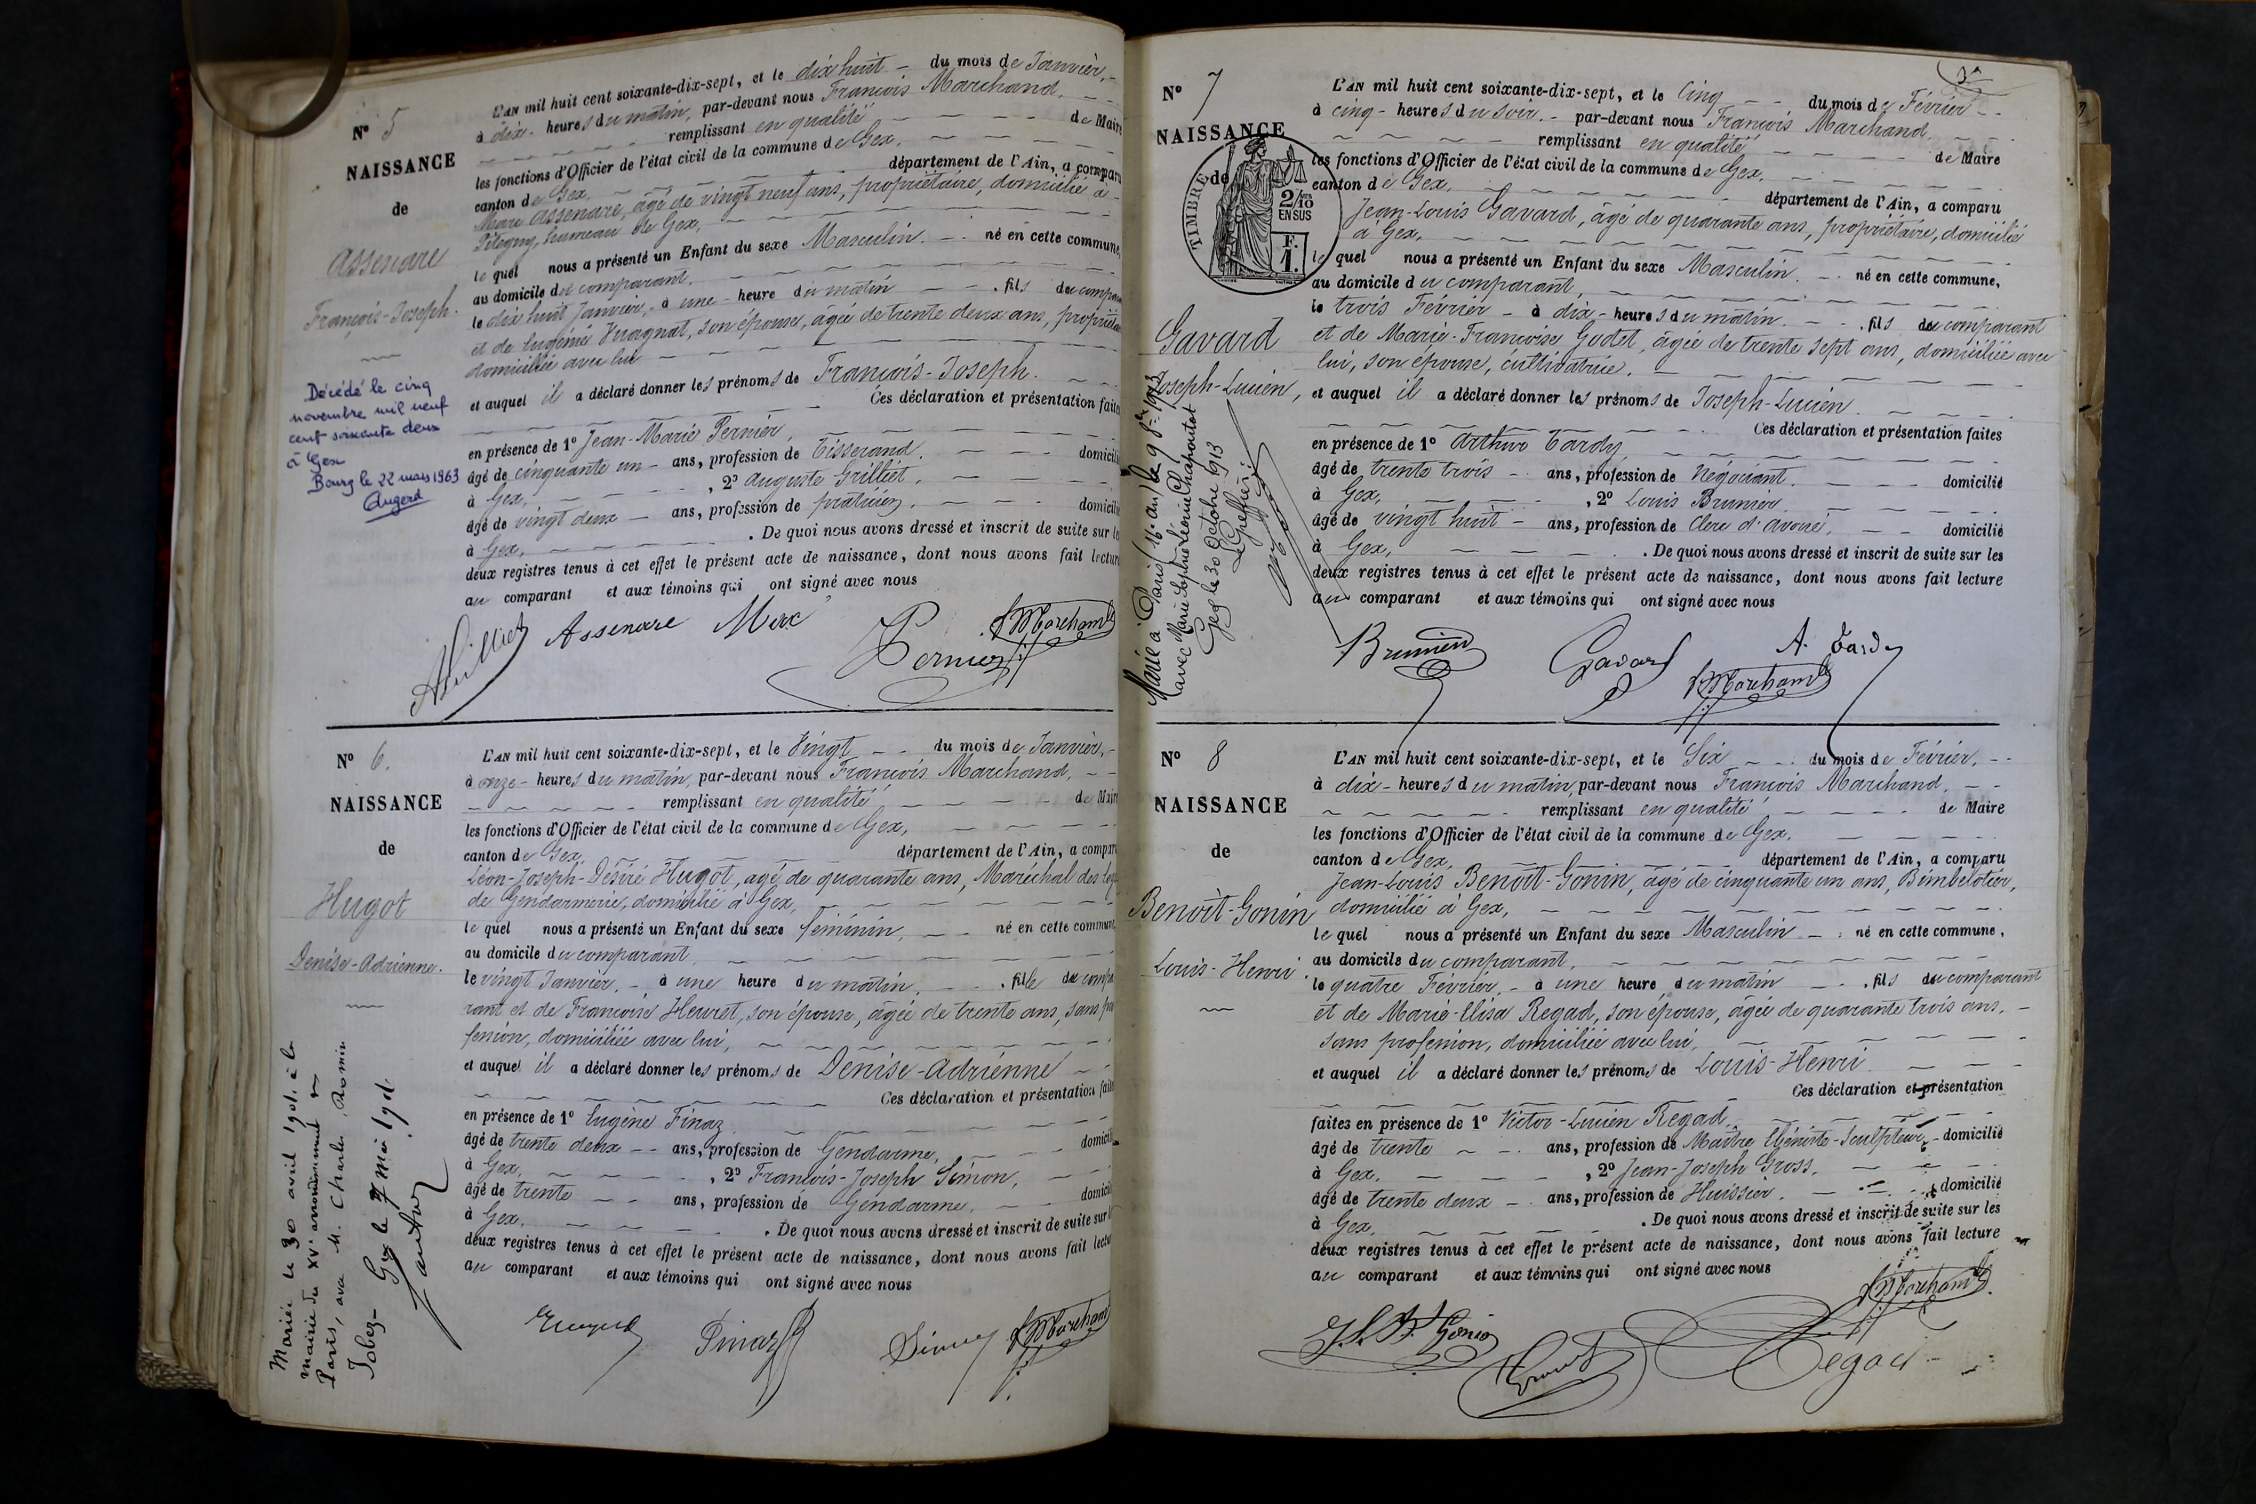 N° 5
NAISSANCE
de
Assenare
François-Joseph.
Décédé le cinq
novembre mil neuf
cent soixante deux
à Gex
Bourg le 22 mars 1963
Augerd
L'AN mil huit cent soixante-dix-sept, et le dix huit du mois de Janvier,
à dix heures du matin, par-devant nous François Marchand,
remplissant en qualité de Maire
les fonctions d'Officier de l'état civil de la commune de Gex,
canton de Gex, département de l'Ain, a comparu
Marc Assenare, âgé de vingt neuf ans, propriétaire, domicilié à
Pitegny, hameau de Gex,
le quel nous a présenté un Enfant du sexe Masculin. né en cette commune,
au domicile du comparant,
le dix huit Janvier, à une heure du matin . fils du
et de Eugénie Vuagnat, son épouse, âgée de trente deux ans,
domiciliée avec lui
et auquel il a déclaré donner les prénoms de François-Joseph.
Ces déclaration et présentation faites
en présence de 1° Jean-Marie Pernier,
âgé de cinquante un ans, profession de Tisserand.
à Gex, , 2° Auguste Grilliet,
âgé de vingt deux ans, profession de praticien,
à Gex, . De quoi nous avons dressé et inscrit de suite sur
deux registres tenus à cet effet le présent acte de naissance, dont nous avons fait lecture
au comparant et aux témoins qui ont signé avec nous
Assenare Marc
Pernier
Marchand
N° 6.
NAISSANCE
de
Hugot
Denise-Adrienne.
Mariée le 30 avril 1901 à la
mairie du XVe arrondissement
Paris, avec M. Charles Romin
Jobez
Gex le 7 Mai 1901.
L'AN mil huit cent soixante-dix-sept, et le Vingt du mois de Janvier,
à onze heures du matin, par-devant nous François Marchand,
remplissant en qualité de Maire
les fonctions d'Officier de l'état civil de la commune de Gex,
canton de Gex, département de l'Ain, a comparu
Léon-Joseph-Désiré Hugot, âgé de quarante ans, Maréchal des
de Gendarmerie, domicilié à Gex,
le quel nous a présenté un Enfant du sexe féminin, né en cette commune,
au domicile du comparant,
le vingt Janvier, à une heure du matin. . fille du compa
rant et de Françoise Heuret, son épouse, âgée de trente ans, sans pro
fession, domiciliée avec lui,
et auquel il a déclaré donner les prénoms de Denise-Adrienne
Ces déclaration et présentation faites
en présence de 1° Eugène Finaz
âgé de trente deux ans, profession de Gendarme,
à Gex, , 2° François-Joseph Simon,
âgé de trente ans, profession de Gendarme,
à Gex, . De quoi nous avons dressé et inscrit de suite sur
deux registres tenus à cet effet le présent acte de naissance, dont nous avons fait
au comparant et aux témoins qui ont signé avec nous
Finaz
Simon
Marchand
N° 7
NAISSANCE
de
TIMBRE
2/10
EN SUS
F.
1.
Gavard
Joseph-Lucien,
Marié à Paris (16e arr) le 9 8bre 1913
avec Marie Sophie Léonie Chapoutot
Gex le 30 Octobre 1913
Le Greffier:
L'AN mil huit cent soixante-dix-sept, et le Cinq du mois de Février
à cinq heures du soir, par-devant nous François Marchand
remplissant en qualité de Maire
les fonctions d'Officier de l'état civil de la commune de Gex,
canton de Gex, département de l'Ain, a comparu
Jean-Louis Gavard, âgé de quarante ans, propriétaire, domicilié
à Gex,
le quel nous a présenté un Enfant du sexe Masculin. né en cette commune,
au domicile du comparant,
le trois Février à dix heures du matin. . fils du comparant
et de Marie-Françoise Godet, âgée de trente sept ans, domiciliée avec
lui, son épouse, cultivatrice.
et auquel il a déclaré donner les prénoms de Joseph-Lucien
Ces déclaration et présentation faites
en présence de 1° Arthur Tardy,
âgé de trente trois ans, profession de Négociant. domicilié
à Gex, , 2° Louis Brunier
âgé de vingt huit ans, profession de Clerc d'avoué, domicilié
à Gex, . De quoi nous avons dressé et inscrit de suite sur les
deux registres tenus à cet effet le présent acte de naissance, dont nous avons fait lecture
au comparant et aux témoins qui ont signé avec nous
Brunier
Gavard
A. Tardy
Marchand
N° 8
NAISSANCE
de
Benoît-Gonin
Louis-Henri
L'AN mil huit cent soixante-dix-sept, et le Six du mois de Février,
à dix heures du matin, par-devant nous François Marchand,
remplissant en qualité de Maire
les fonctions d'Officier de l'état civil de la commune de Gex.
canton de Gex, département de l'Ain, a comparu
Jean-Louis Benoît-Gonin, âgé de cinquante un ans, Bimbelotier,
domicilié à Gex,
le quel nous a présenté un Enfant du sexe Masculin né en cette commune,
au domicile du comparant,
le quatre Février, à une heure du matin . fils du comparant
et de Marie-Elisa Regad, son épouse, âgée de quarante trois ans,
sans profession, domiciliée avec lui,
et auquel il a déclaré donner les prénoms de Louis-Henri
Ces déclaration et présentation
faites en présence de 1° Victor-Lucien Regad,
âgé de trente ans, profession de Maître Ebéniste-Sculpteur, domicilié
à Gex, , 2° Jean-Joseph Gross,
âgé de trente deux ans, profession de Huissier. domicilié
à Gex, . De quoi nous avons dressé et inscrit de suite sur les
deux registres tenus à cet effet le présent acte de naissance, dont nous avons fait lecture
au comparant et aux témoins qui ont signé avec nous
Marchand
J.L. B. Gonin
Regad